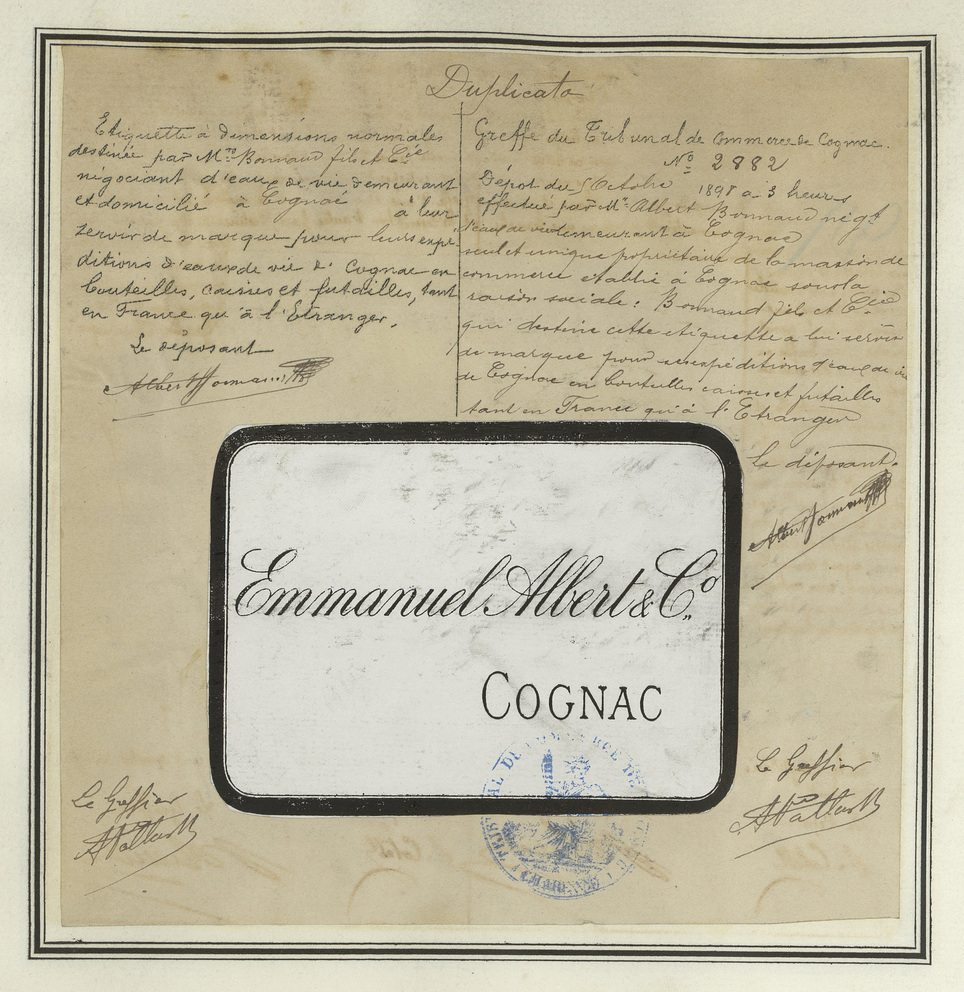 Duplicata
Etiquette à dimensions normales
destinée par Mrs Bonnaud fils et Cie
négociant d'eaux de vie, demeurant
et domicilié à Cognac à leur
servir de marque pour leurs expé-
ditions d'eaux de vie de Cognac en
bouteilles, caisses et futailles, tant
en France qu'à l'Etranger.
Le déposant
Greffe du Tribunal de Commerce de Cognac.
No 2882
Dépôt du Octobre 1898 à 3 heures
effectué par Mr Albert Bonnaud négt
d'eaux de vie demeurant à Cognac
seul et unique propriétaire de la maison de
commerce établie à Cognac sous la
raison sociale: Bonnaud fils et Cie
qui destine cette etiquette a lui servir
de marque pour ses expéditions d'eaux de vie
de Cognac en bouteilles caisses et futailles
tant en France qu'à l'Etranger
Le déposant.
Albert Bonnaud
Albert Bonnaud
Emmanuel Albert & Co.
COGNAC
Le Greffier
Le Greffier
TRIBUNAL DU COMMERCE DE